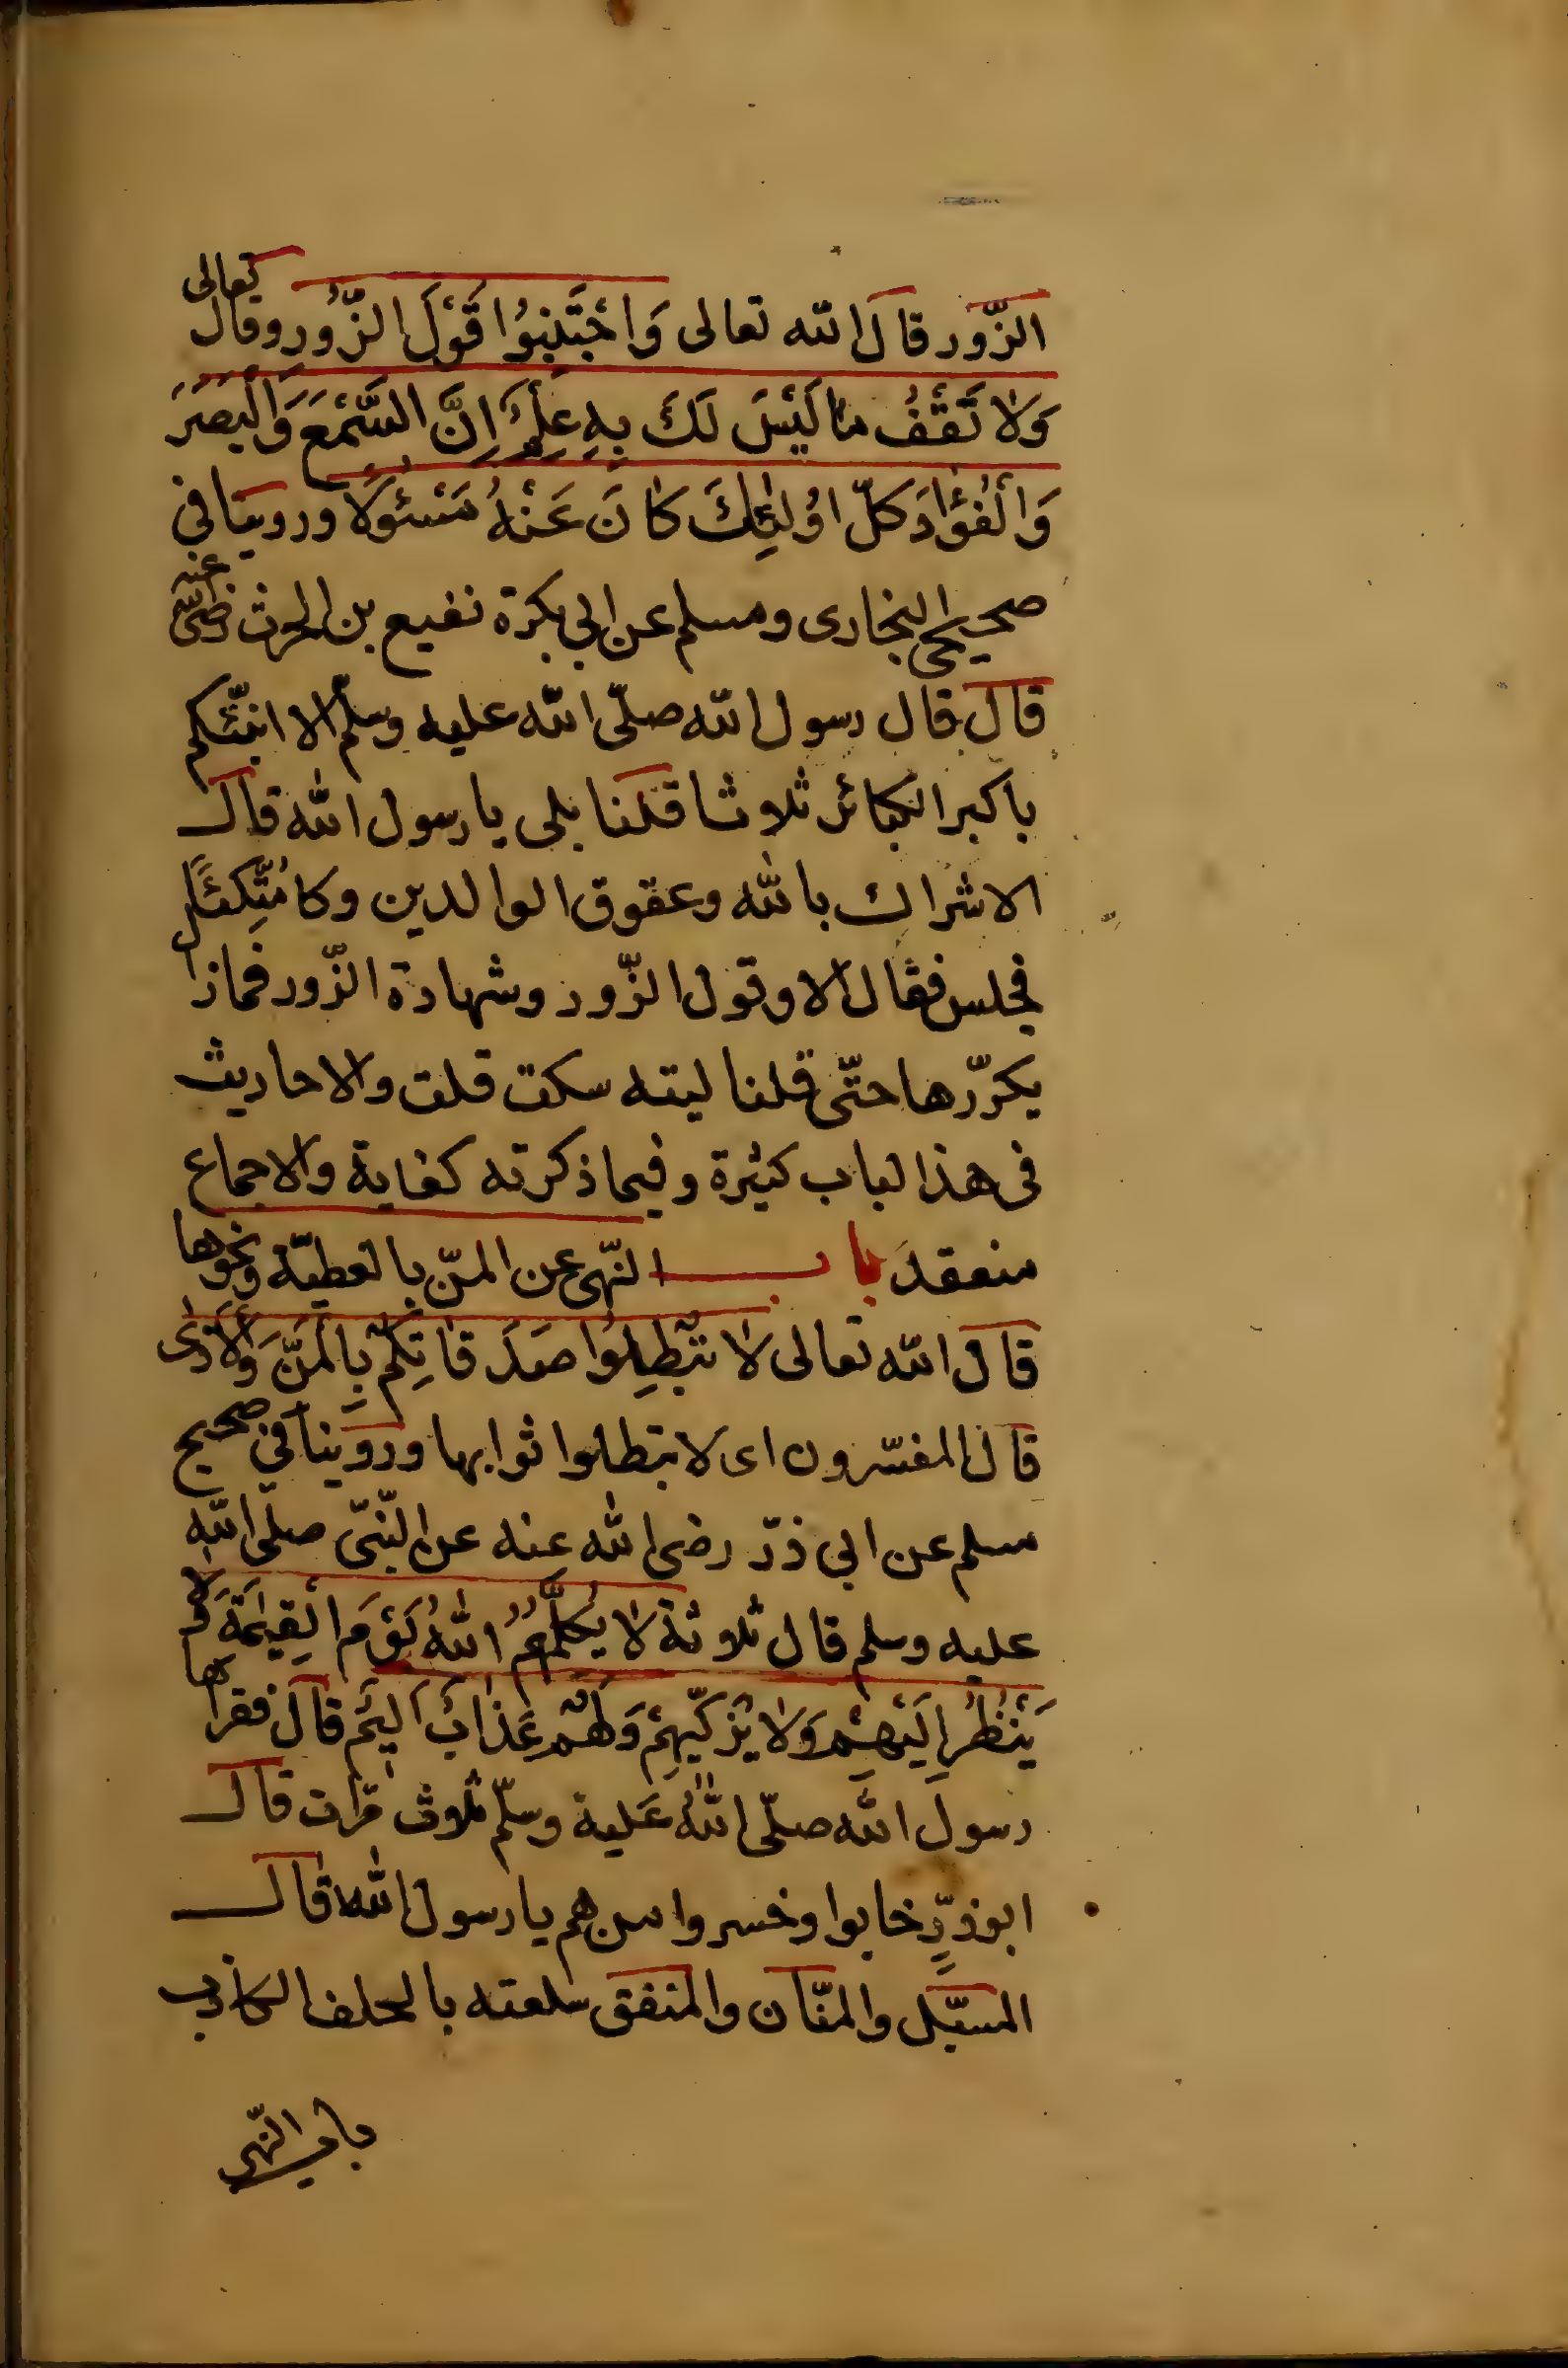 الزّور قال الله تعالى وَاجْتَنِبُوا قَوْلَ الزُّورِ وقال تعالى
وَلا تَقْفُ مَا لَيْسَ لَكَ بِهِ عِلْمٌ اِنَّ السَّمْعَ وَالْبَصَرَ
وَالْفُؤادَ كلّ اوُلٰئِكَ كانَ عَنْهُ مَسْئولاً وروينا فى
صحيحى البخارى ومسلم عن ابى بكرة نفيع بن الحرث رضىّ عنه
قال قال رسول الله صلّى الله عليه وسلّم الا انبّئكم
باكبر الكبائر ثلاوثا قلنا بلى يا رسول الله قال
الاشراك بالله وعقوق الوالدين وكا مُتَّكِئًا
فجلس فقال الا وقول الزّور وشهادة الزّور فمازا
يكرّرها حتّى قلنا ليته سكت قلت والاحاديث
فى هذا لباب كثيرة وفيما ذكرته كفاية والاجماع
منعقد باب النّهى عن المنّ بالعطيّة ونحوها
قال الله تعالى لا تُبْطِلُوا صَدَقاتِكُمْ بِالْمَنِّ وَالْاَذى
قال المفسّرون اى لا تبطلوا ثوابها وروينا فى صحيح
مسلم عن ابى ذرّ رضى الله عنه عن النّبىّ صلى الله
عليه وسلم قال ثلاوثة لا يُكَلِّمُهُمُ اللهُ يَوْمَ الْقِيٰمَةِ وَلا
يَنْظُرُ اِلَيْهِمْ وَلا يُزَكّيهِمْ وَلَهُمْ عَذَابٌ اَليمٌ قال فقراها
رسول الله صلّى اللهُ عَليه وسلّم ثلاوث مرّات قال
ابو ذرٍّ خابوا وخسروا من هم يا رسول الله قال
المسبّل والمنّان والمنفق سلعته بالحلف الكاذب
باب النّهى